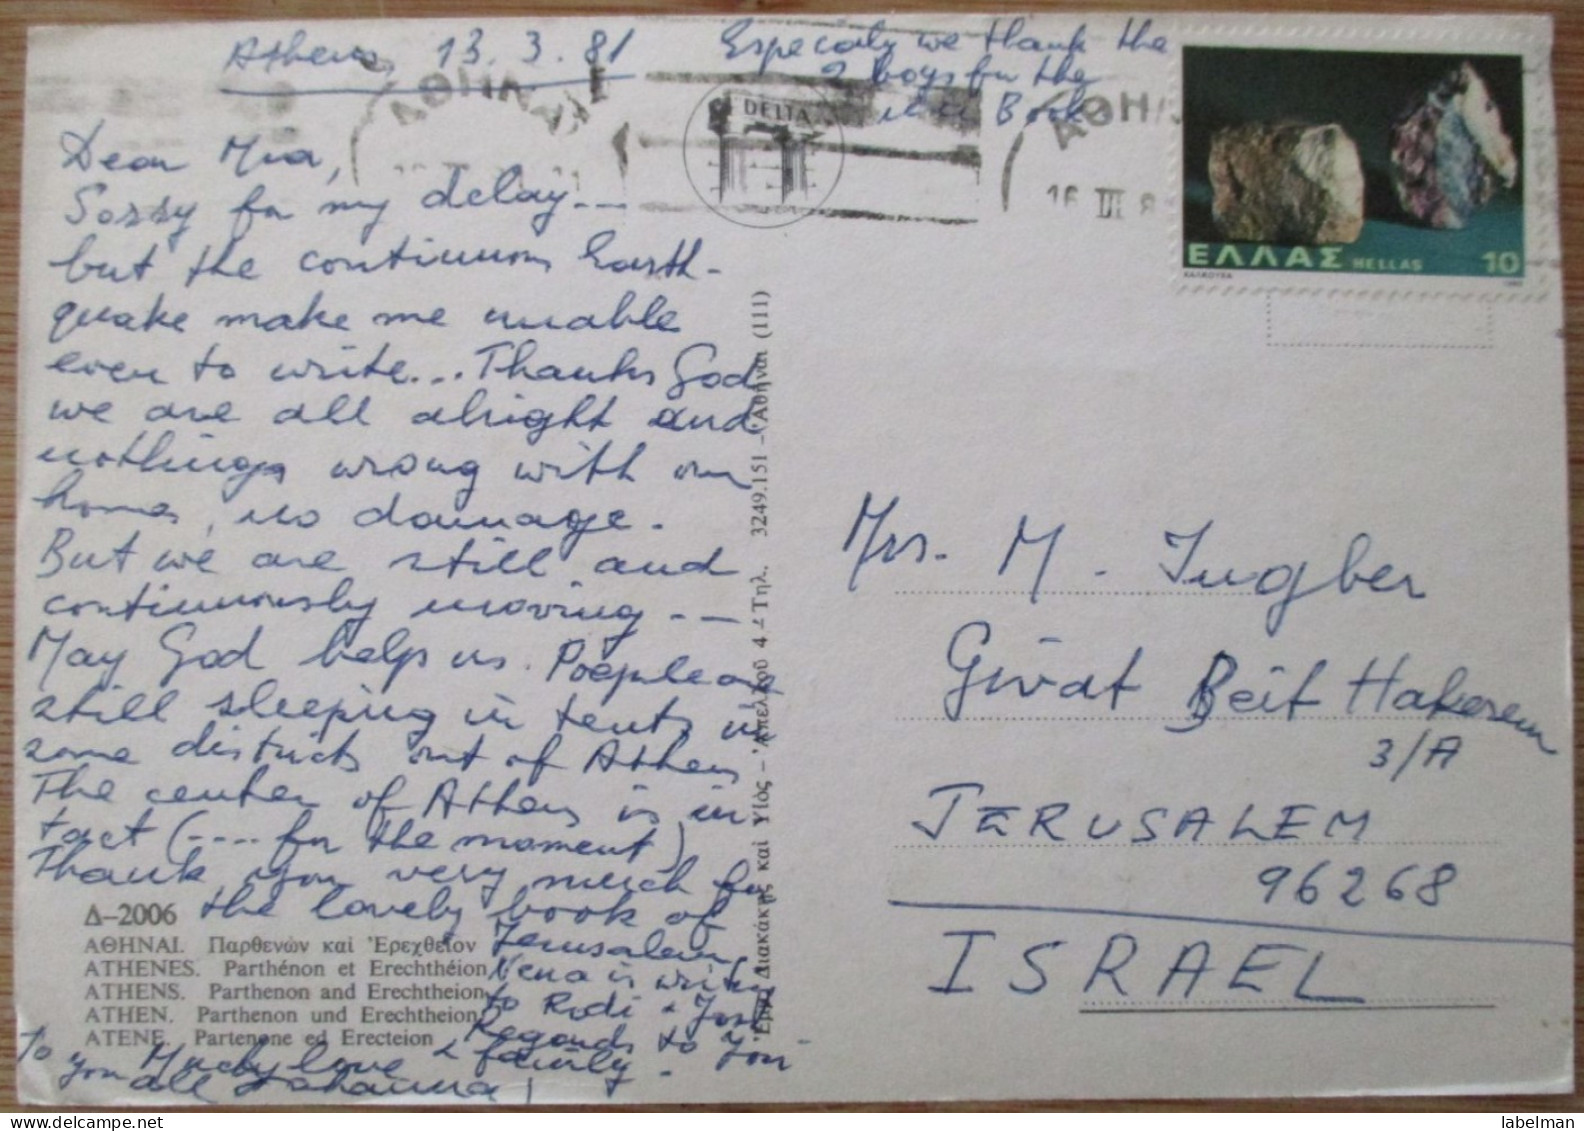 Athens, 13.3.81
Especialy we thank the
2 boys for the
Book
ΑΘΗΝΑΙ
DELTA
ΑΘΗ
16 III 8
ΕΛΛΑΣ HELLAS 10
Dear Mia,
Sorry for my delay --
but the continuous Earth-
quake make me unable
even to write... Thanks God
we are all alright and
nothings wrong with our
homes, no damage.
But we are still and
continuously moving --
May God helps us. Poeple are
still sleeping in tents in
some districts out of Athens
The center of Athens is in
tact (.... for the moment)
Thank you very much for
the lovely book of
Jerusalem,
Nena is writing
to Rodi &
Regards to your
family.
To you all Much love &
Δ-2006
ΑΘΗΝΑΙ. Παρθενών καί Ἐρεχθεῖον
ATHENES. Parthénon et Erechthéion
ATHENS. Parthenon and Erechtheion
ATHEN. Parthenon und Erechtheion
ATENE. Partenone ed Erecteion
Διακάκης καί Υἱός - Ἀπελλοῦ 4 - Τηλ. 3249.151 - Ἀθῆναι (111)
Mrs. M. Ingber
Givat Beit Hakerem
3/A
JERUSALEM
96268
ISRAEL
labelman